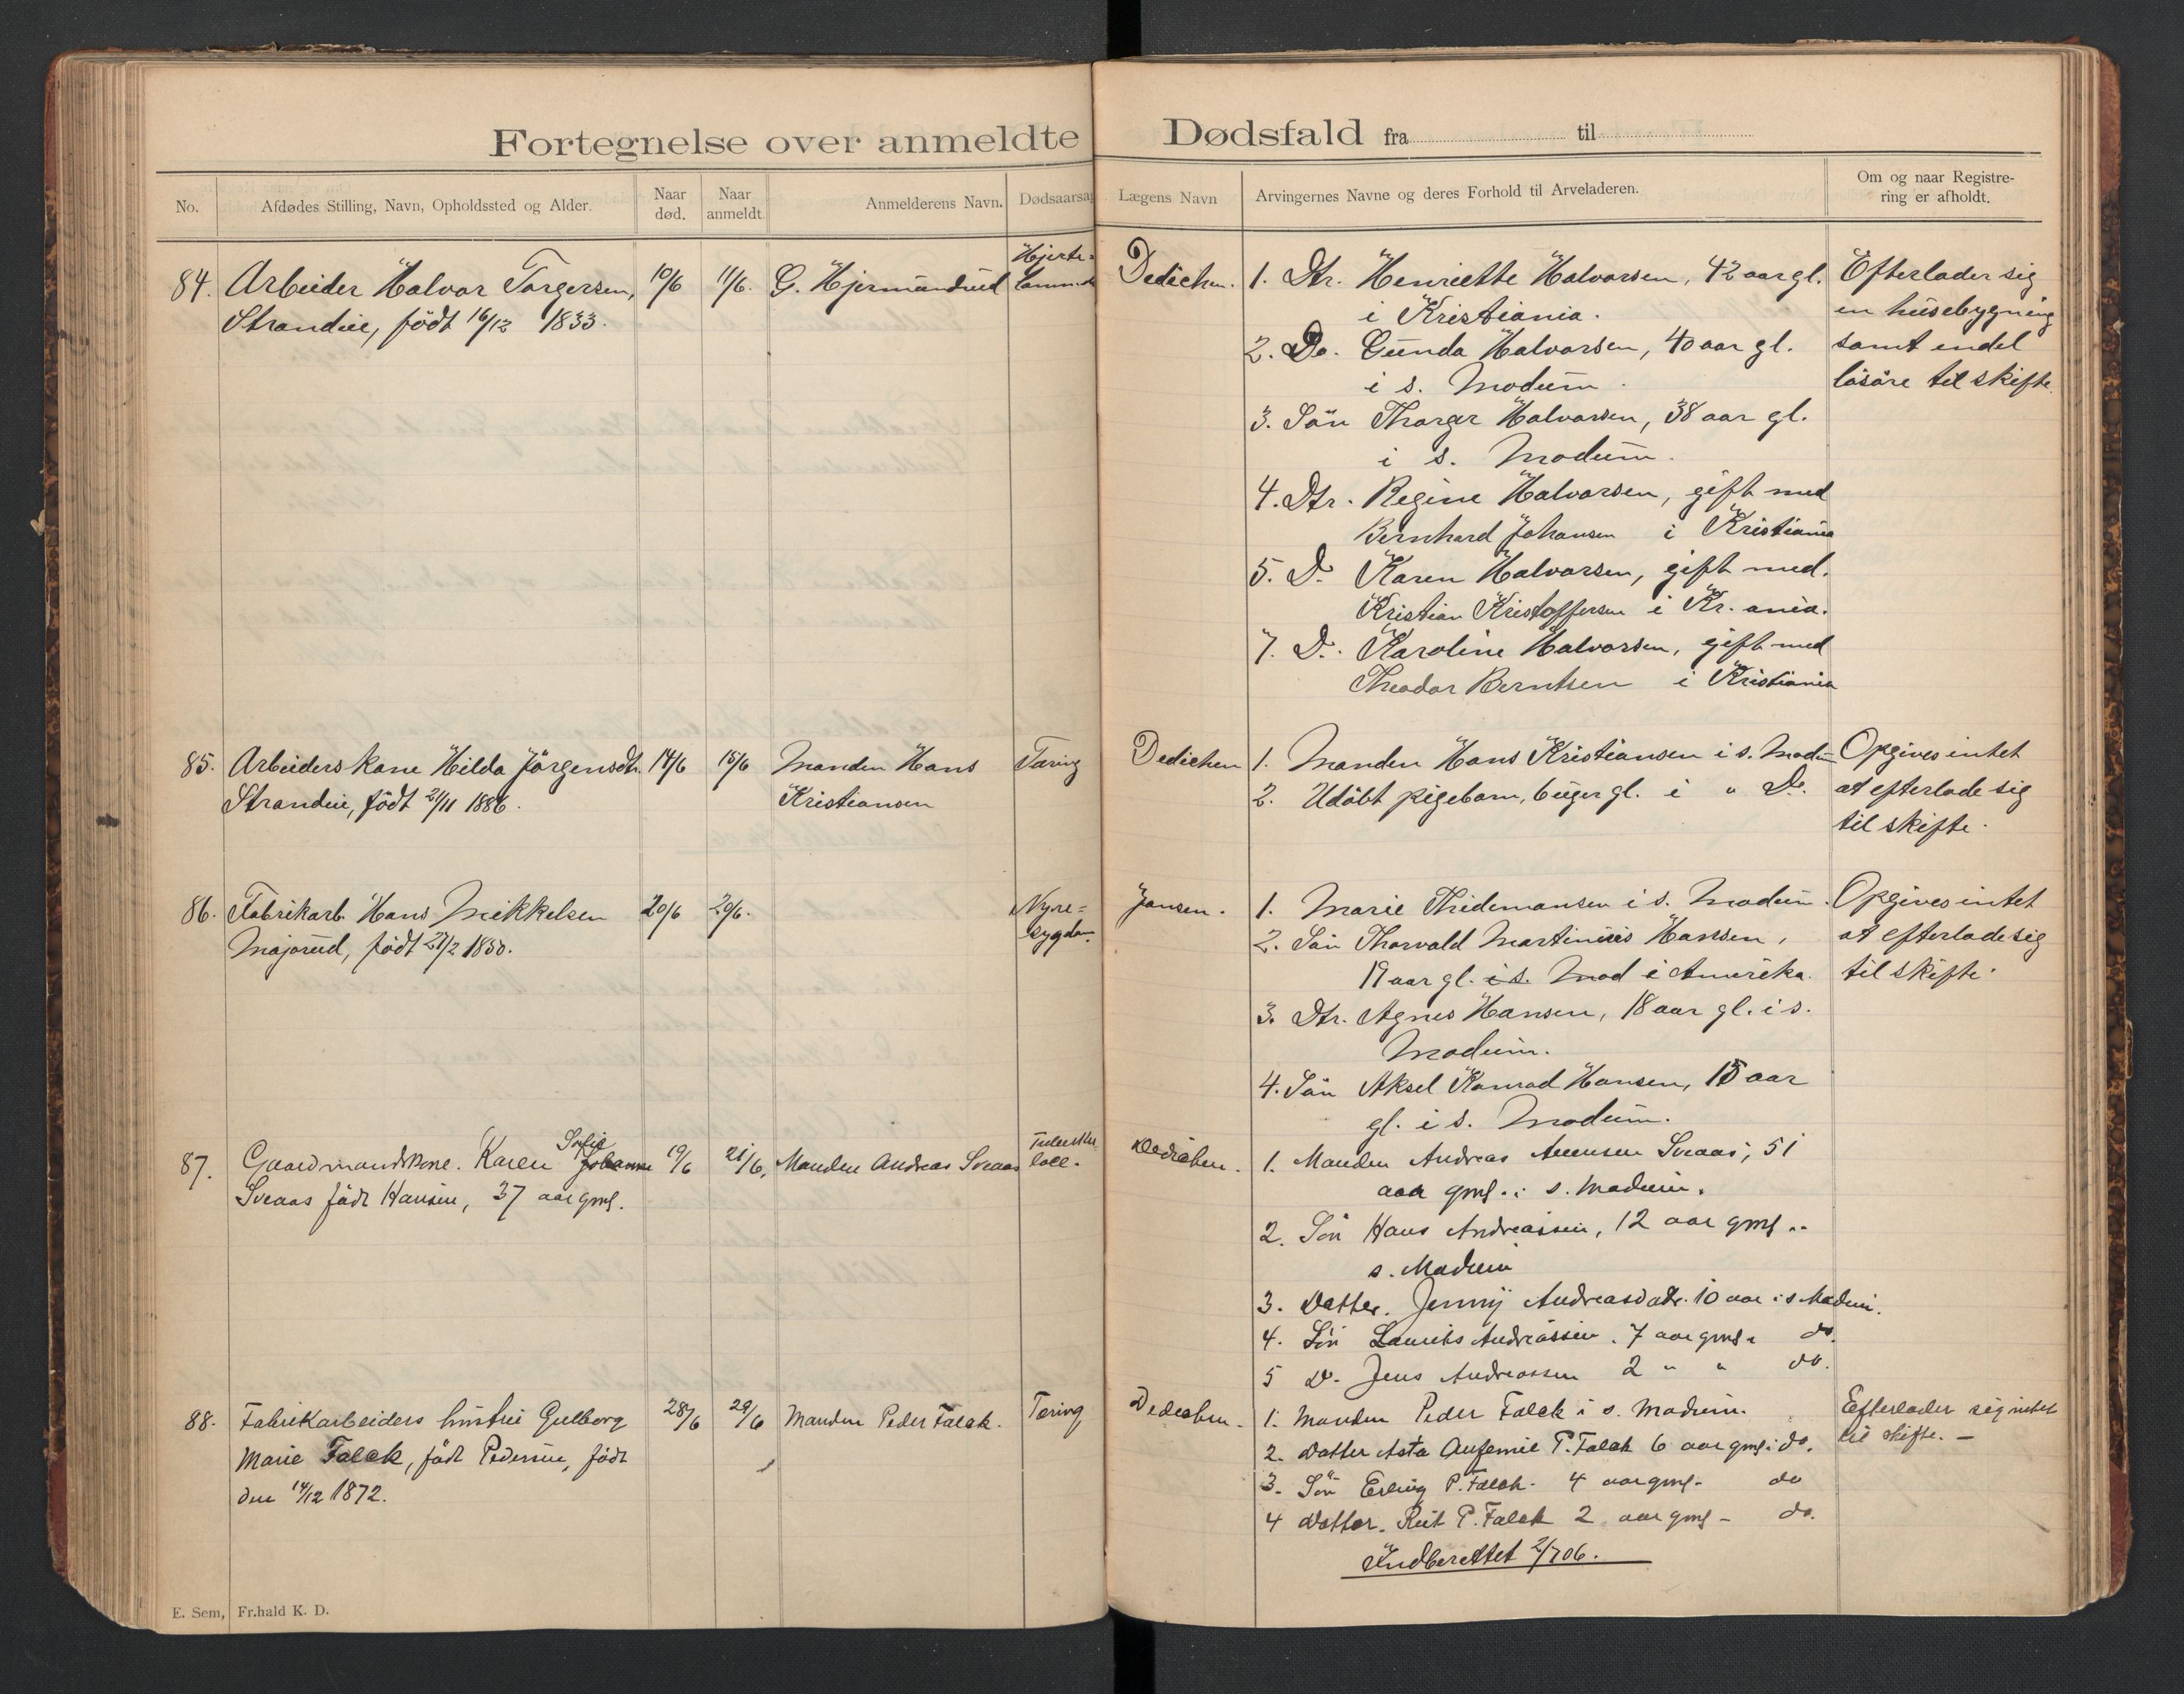 Fortegnelse over anmeldte Dødsfald fra til
No. Afdødes Stilling, Navn, Opholdssted og Alder. Naar død. Naar anmeldt. Anmelderens Navn. Dødsaarsag Lægens Navn Arvingernes Navne og deres Forhold til Arveladeren. Om og naar Registrering er afholdt.
84. Arbeider Halvor Torgersen, 10/6 11/6. G. Hjermundrud Hjerte=
Strandie, født 16/12 1833.
Dedichen. 1. Dtr. Henriette Halvorsen, 42 aar gl. Efterlader sig
i Kristiania. en husebygning
2. Do. Gunda Halvorsen, 40 aar gl. samt endel
i s. Modum. løsøre til skifte.
3. Søn Thorger Halvorsen, 38 aar gl.
i s. Modum.
4. Dtr. Regine Halvorsen, gift med
Bernhard Johansen i Kristiania
5. D. Karen Halvorsen, gift med.
Kristian Kristoffersen i Kr. ania.
7. D. Karoline Halvorsen, gift med
Theodor Berntsen i Kristiania
85. Arbeiderskone Hilda Jörgensdtr. 14/6 15/6 Manden Hans Tæring
Strandie, født 21/11 1886. Kristiansen
Dedichen 1. Manden Hans Kristiansen i s. Modum Opgives intet
2. Udöbt pigebarn, 6 uger gl. i " Do. at efterlade sig
til skifte.
86. Fabrikarb. Hans Mikkelsen 20/6 20/6. Nyre=
Majorud, født 27/2 1850. sygdom.
Jansen. 1. Marie Thidemansen i s. Modum. Opgives intet
2. Søn Thorvald Martinius Hansen, at efterlade sig
19 aar gl. i s. Mod i Amerika. til skifte.
3. Dtr. Agnes Hansen, 18 aar gl. i s.
Modum.
4. Søn Aksel Konrad Hansen, 15 aar
gl. i s. Modum.
Sofie
87. Gaardmandskone. Karen Johanne 19/6 21/6, Manden Andreas Sveaas
Sveaas født Hansen, 37 aar gml.
Dedichen. 1. Manden Andreas Sveaas, 51
aar gml. i s. Modum.
2. Søn Hans Andreassen, 12 aar gml. i
s. Modum
3. Datter. Jenny Andreasdatr. 10 aar i s Modum.
4. Søn Laurits Andreassen. 7 aar gml. do.
5 D. Jens Andreassen 2 " " do.
88. Fabrikarbeiders hustru Gulborg 28/6 29/6 Manden Peder Falck. Tæring
Marie Falck, født Pedersen, født
den 14/12 1872.
Dedichen. 1. Manden Peder Falck i s. Modum. Efterlader sig intet
2. Datter Asta Aufemie P. Falck 6 aar gml. i do. til skifte. —
3. Søn Erling P. Falck. 4 aar gml. do
4 Datter. Rut P. Falck 2 aar gml - do.
Indberettet 2/7 06.
E. Sem, Fr.hald K. D.